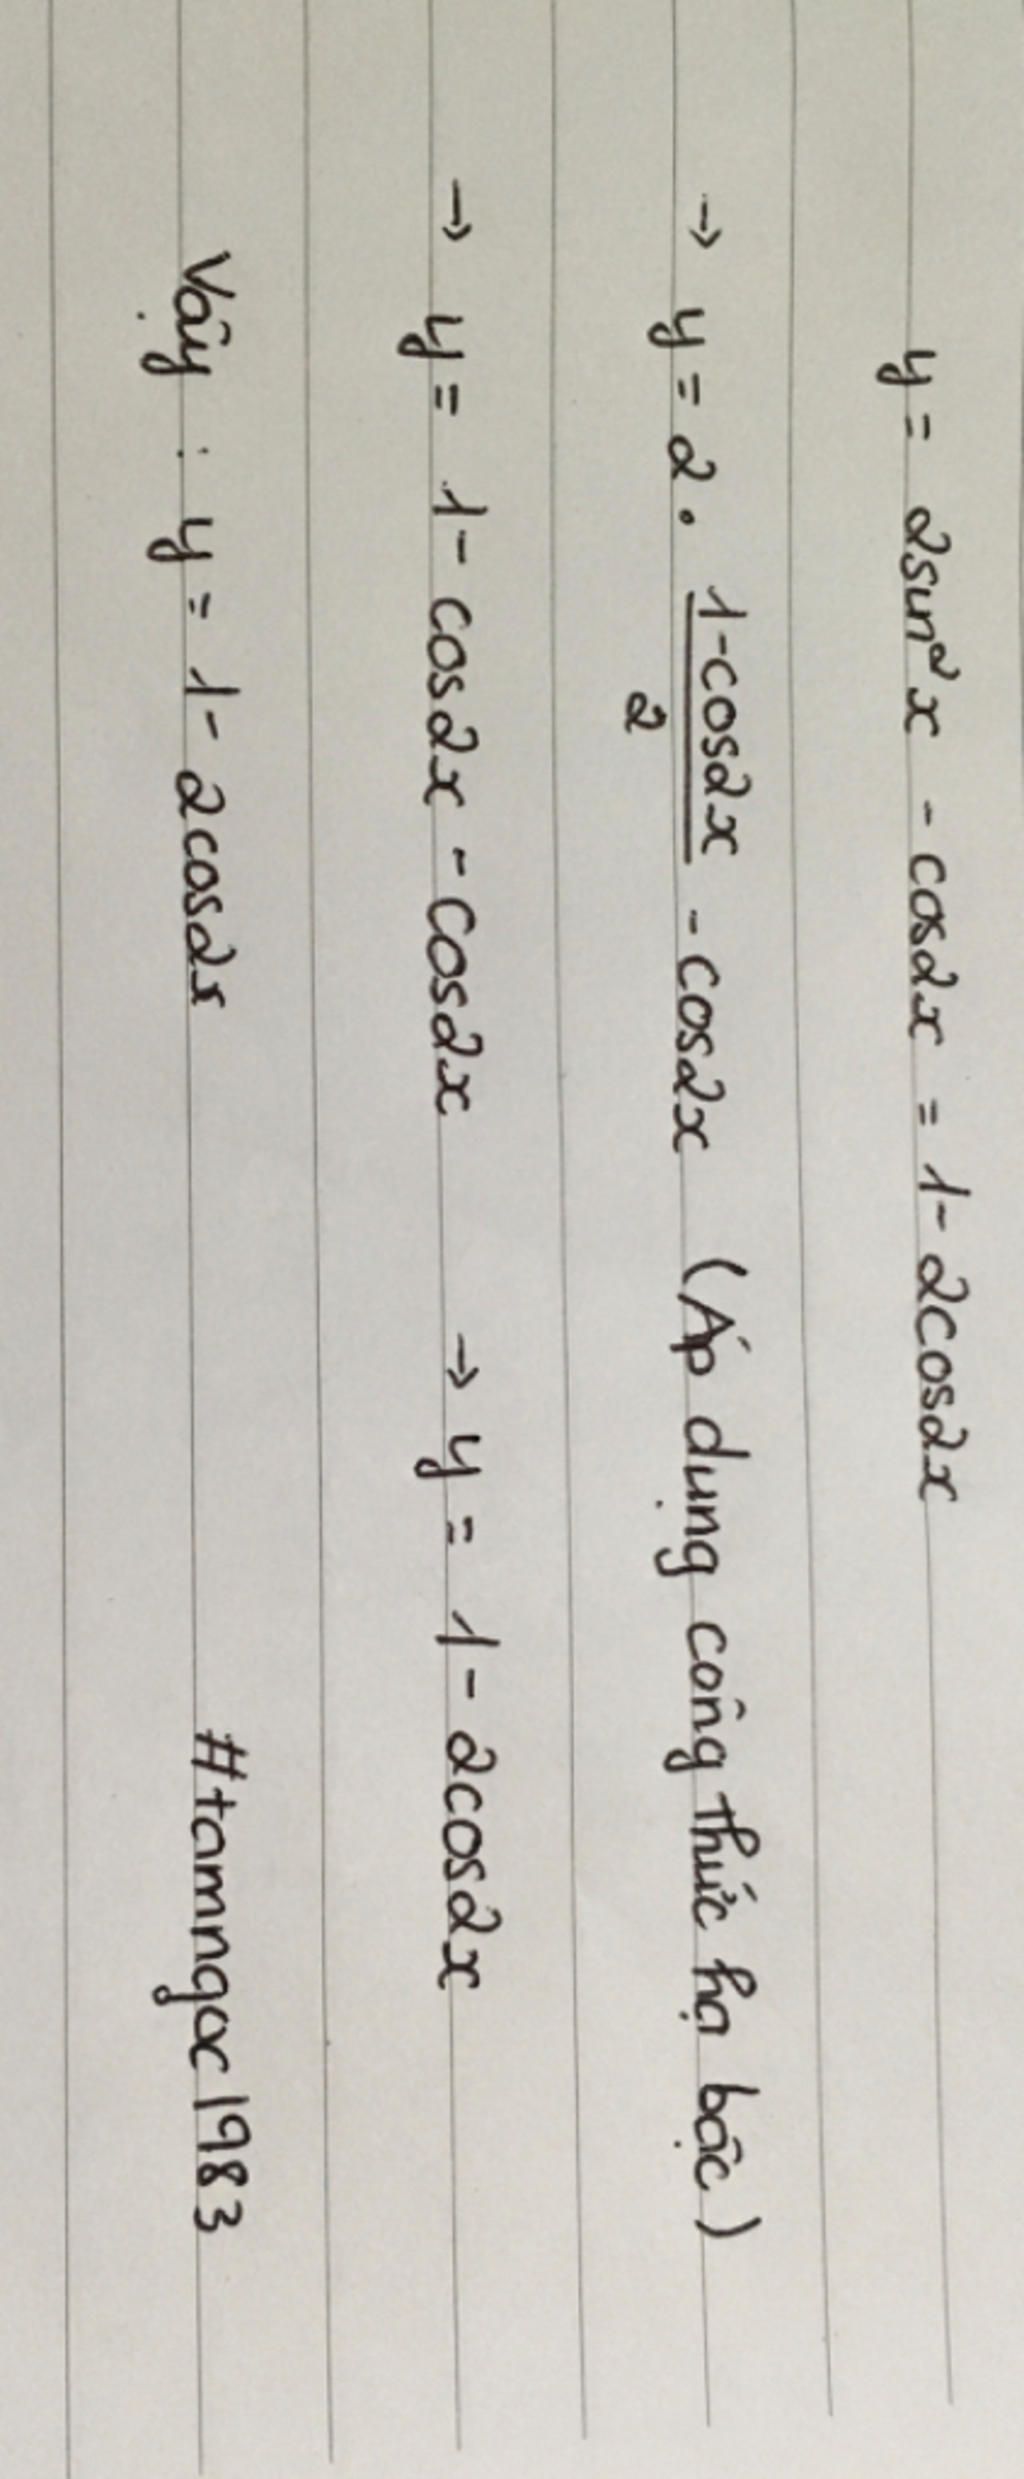 y = 2sin²x - cos2x = 1 - 2cos2x
→ y = 2 . (1-cos2x)/2 - cos2x (Áp dụng công thức hạ bậc)
→ y = 1 - cos2x - cos2x → y = 1 - 2cos2x
Vậy : y = 1 - 2cos2x #tamngoc1983